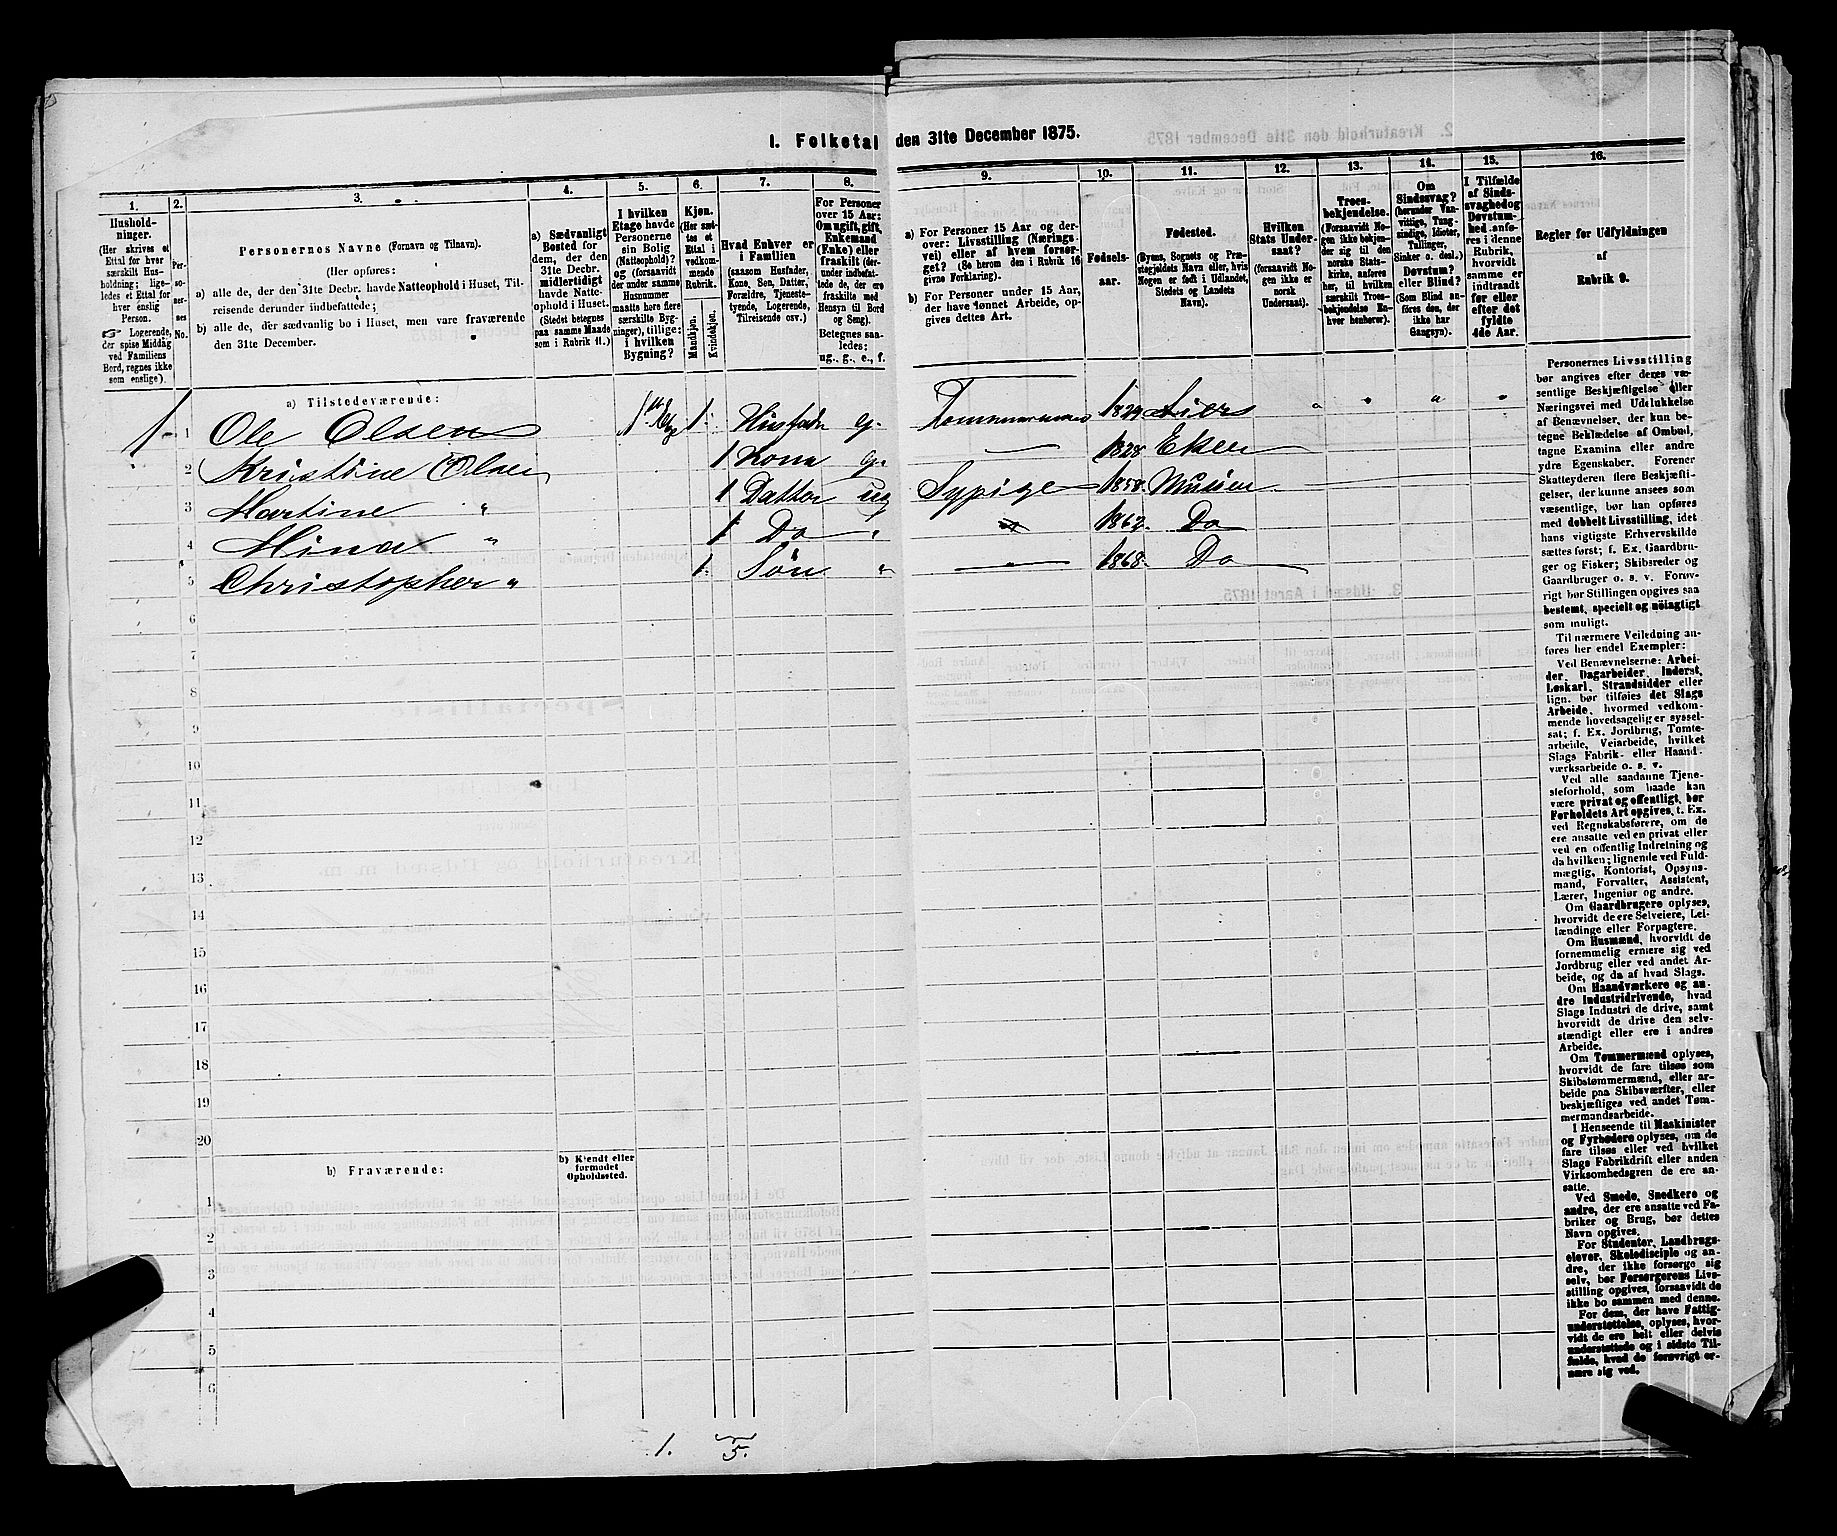 1. Folketal den 31te December 1875.
1. 2. 3. 4. 5. 6. 7. 8. 9. 10. 11. 12. 13. 14. 15. 16.
Hushold-
ninger.
(Her skrives et
Ettal for hver
særskilt Hus-
holdning; lige-
ledes et Ettal for
hver enslig
Person.
☞ Logerende,
der spise Middag
ved Familiens
Bord, regnes ikke
som enslige).
Per-
so-
ner-
nes
No.
Personernes Navne (Fornavn og Tilnavn).
(Her opføres:
a) alle de, der den 31te Decbr. havde Natteophold i Huset, Til-
reisende derunder indbefattede;
b) alle de, der sædvanlig bo i Huset, men vare fraværende
den 31te December.
a) Sædvanligt
Bosted for
dem, der den
31te Decbr.
midlertidigt
havde Natte-
ophold i Huset.
(Stedet betegnes
paa samme Maade
som i Rubrik 11.)
I hvilken
Etage havde
Personerne
sin Bolig
(Natteophold)?
og (forsaavidt
der under samme
Husnummer
maatte høre flere
særskilte Byg-
ninger), tillige:
i hvilken
Bygning?
Kjøn.
(Her sæt-
tes et
Ettal i
vedkom-
mende
Rubrik.
Mandkjøn.
Kvindekjøn.
Hvad Enhver er
i Familien
(saasom Husfader,
Kone, Søn, Datter,
Forældre, Tjeneste-
tyende, Logerende,
Tilreisende osv.)
For Personer
over 15 Aar:
Om ugift, gift,
Enkemand
(Enke) eller
fraskilt (der-
under indbefat-
tede de, der ere
fraskilte med
Hensyn til Bord
og Seng).
Betegnes saa-
ledes:
ug., g., e., f.
a) For Personer 15 Aar og der-
over: Livsstilling (Nærings-
vei) eller af hvem forsør-
get? (Se herom den i Rubrik 16
givne Forklaring).
b) For Personer under 15 Aar,
der have lønnet Arbeide, op-
gives dettes Art.
Fødsels-
aar.
Fødested.
(Byens, Sognets og Præ-
stegjeldets Navn eller, hvis
Nogen er født i Udlandet,
Stedets og Landets
Navn).
Hvilken
Stats Under-
saat?
(forsaavidt No-
gen ikke er
norsk
Undersaat).
Troes-
bekjendelse.
(Forsaavidt No-
gen ikke bekjen-
der sig til den
norske Stats-
kirke, anføres
her, til hvilken
særskilt Troes-
bekjendelse En-
hver henhører).
Om
Sindssvag?
(herunder Van-
vittige, Tung-
sindige, Idioter,
Tullinger,
Sinker o. desl.)
Døvstum?
eller Blind?
(Som Blind an-
føres den, der
ikke har
Gangsyn).
I Tilfælde
af Sinds-
svaghed og
Døvstum-
hed, anfø-
res i denne
Rubrik,
hvorvidt
samme er
indtraadt
før eller
efter det
fyldte
4de Aar.
Regler for Udfyldningen
af
Rubrik 9.
a) Tilstedeværende:
1 1 Ole Olsen 1. Husfader g. Tømmermand 1829 Lier " " " "
2 Kristine Olsen 1 Kone g. — 1828 Eker
3 Martine " 1 Datter ug Sypige 1858.
4 Mina " 1 Do " 1862. Do
5 Christopher " 1. Søn " — 1868. Do
6
7
8
9
10
11
12
13
14
15
16
17
18
19
20
b) Fraværende:
b) Kjendt eller
formodet
Opholdssted.
1
2
3
4
5
6
1. 5.
Personernes Livsstilling
bør angives efter deres væ-
sentlige Beskjæftigelse eller
Næringsvei med Udelukkelse
af Benævnelser, der kun be-
tegne Beklædelse af Ombud,
tagne Examina eller andre
ydre Egenskaber. Forener
Skatteyderen flere Beskjæfti-
gelser, der kunne ansees som
væsentlige, bør han opføres
med dobbelt Livsstilling, idet
hans vigtigste Erhvervskilde
sættes først; f. Ex. Gaardbru-
ger og Fisker; Skibsreder og
Gaardbruger o. s. v. Forøv-
rigt bør Stillingen opgives saa
bestemt, specielt og nöiagtigt
som muligt.
Til nærmere Veiledning an-
føres her endel Exempler:
Ved Benævnelserne: Arbei-
der, Dagarbeider, Inderst,
Løskarl, Strandsidder eller
lign. bør tilføies det Slags
Arbeide, hvormed vedkom-
mende hovedsagelig er syssel-
sat; f. Ex. Jordbrug, Tomte-
arbeide, Veiarbeide, hvilket
Slags Fabrik- eller Haand-
værksarbeide o. s. v.
Ved alle saadanne Tjene-
steforhold, som baade kan
være privat og offentligt, bør
Forholdets Art opgives, t. Ex.
ved Regnskabsførere, om de
ere ansatte ved en privat eller
ved en offentlig Indretning og
da hvilken; lignende ved Fuld-
mægtig, Kontorist, Opsyns-
mand, Forvalter, Assistent,
Lærer, Ingeniør og andre.
Om Gaardbrugere oplyses,
hvorvidt de ere Selveiere, Lei-
lændinge eller Forpagtere.
Om Husmænd, hvorvidt de
fornemmelig ernære sig ved
Jordbrug eller ved andet Ar-
beide, og da af hvad Slags.
Om Haandværkere og an-
dre Industridrivende, hvad
Slags Industri de drive, samt
hvorvidt de drive den selv-
stændigt eller ere i andres
Arbeide.
Om Tømmermænd oplyses,
hvorvidt de fare tilsøs som
Skibstømmermænd, eller ar-
beide paa Skibsværfter, eller
beskjæftiges ved andet Tøm-
mermandsarbeide.
I Henseende til Maskinister
og Fyrbødere oplyses, om de
fare tilsøs eller ved hvilket
Slags Fabrikdrift eller anden
Virksomhedsgren de ere an-
satte.
Ved Smede, Snedkere og
andre, der ere ansatte ved Fa-
briker og Brug, bør dettes
Navn opgives.
For Studenter, Landbrugs-
elever, Skoledisciple og an-
dre, der ikke forsørge sig
selv, bør Forsørgerens Livs-
stilling opgives, forsaavidt de
ikke bo sammen med denne.
For dem, der have Fattig-
understøttelse, oplyses, hvor-
vidt de ere helt eller delvis
understøttede og i sidste Til-
fælde, hvad de forøvrigt er-
nære sig ved.